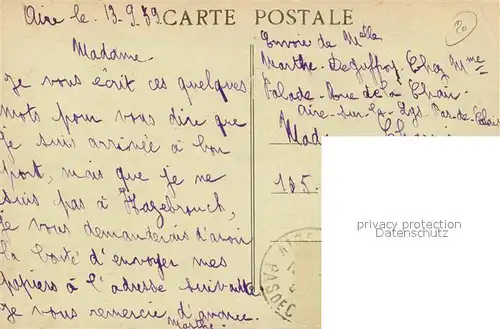 Aire le. 13-9.39
CARTE POSTALE
Madame.
Je vous écrit ces quelques
mots pour vous dire que
je suis arrivée à bon
port, mais que je ne
suis pas à Hazebrouck,
Je vous demanderais d'avoir
la bonté d'envoyer mes
papiers à l'adresse suivante
Je vous remercie d'avance.
Marthe.
Envoie de Melle
Marthe. Deguffroy. Chez Mme
Palade. Rue de la
Aire-sur-la-Lys Pas-de-Calais
105.
privacy protection
Datenschutz
PAS DE C